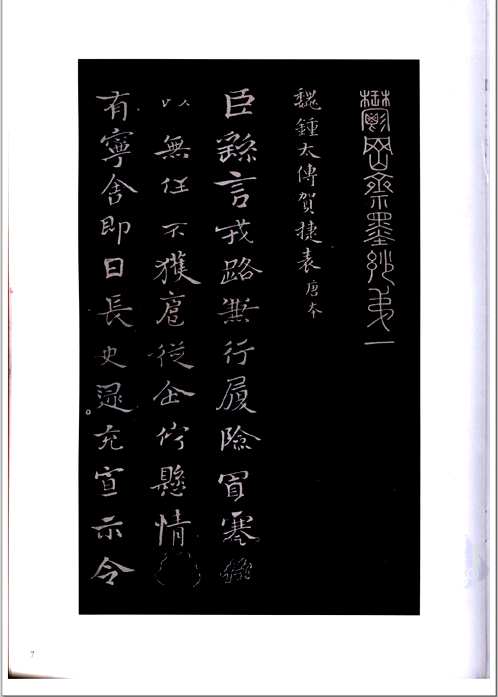 鬱岡齋墨妙弟一
魏鍾太傅賀捷表唐本
臣繇言戎路兼行履險冒寒
以無任不獲扈從企佇懸情
有寧舍即日長史逯充宣示令
7